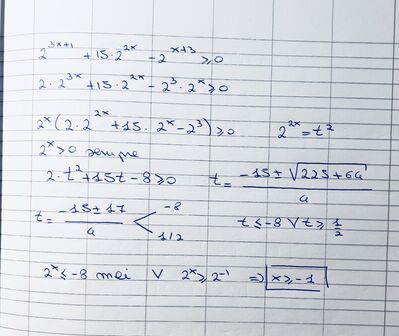 2^{3x+1} + 15·2^{2x} - 2^{x+3} ≥ 0
2·2^{3x} + 15·2^{2x} - 2^3·2^x ≥ 0
2^x (2·2^{2x} + 15·2^x - 2^3) ≥ 0 2^{2x} = t^2
2^x > 0 sempre
2·t^2 + 15t - 8 ≥ 0 t = \frac{-15 ± \sqrt{225 + 64}}{4}
t = \frac{-15 ± 17}{4} < -8 1/2 t ≤ -8 ∨ t ≥ \frac{1}{2}
2^x ≤ -8 mai ∨ 2^x ≥ 2^{-1} ⇒ x ≥ -1